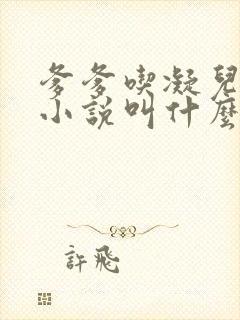 爹爹喫凝兒
小說叫什麼
許飛